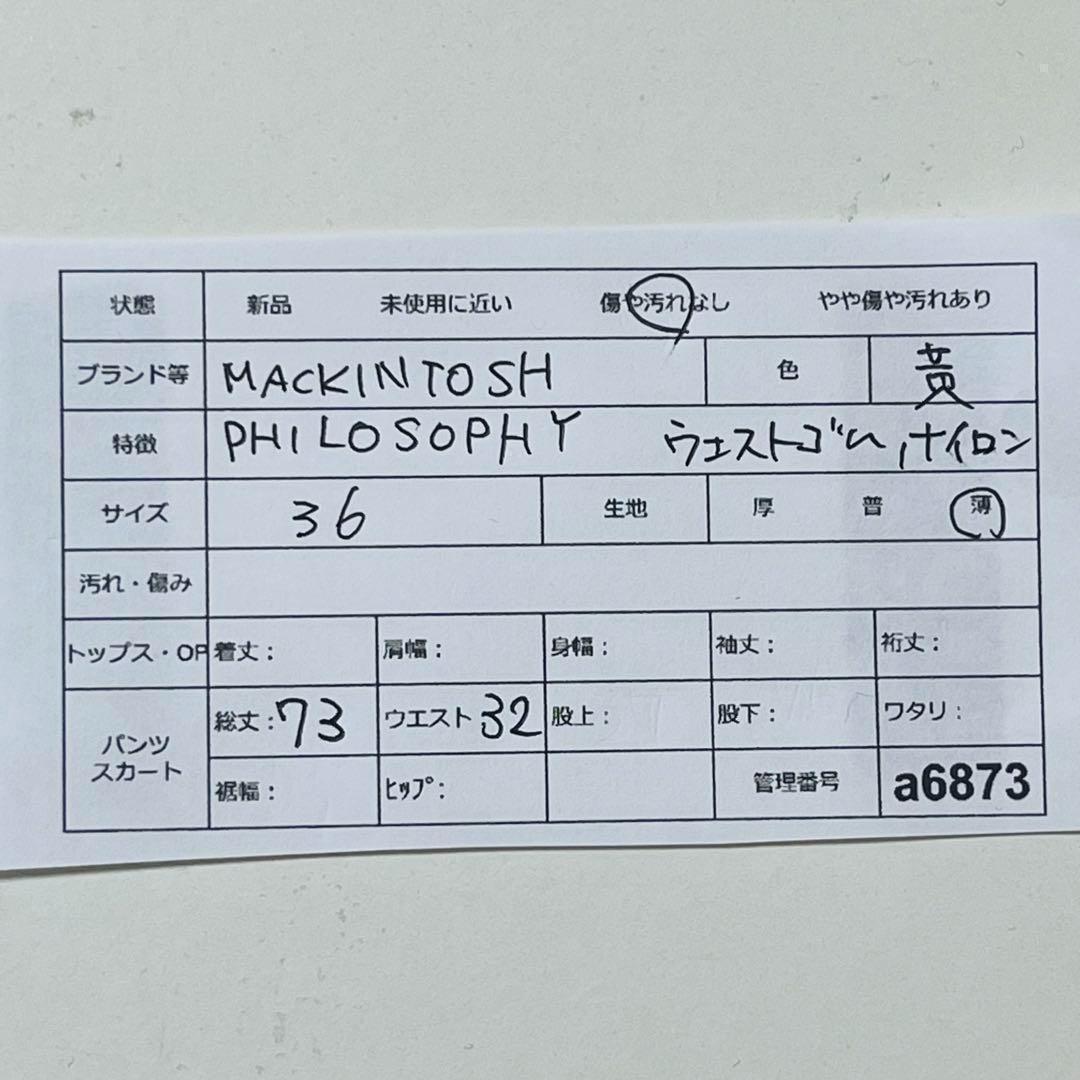 状態 新品 未使用に近い 傷や汚れなし やや傷や汚れあり
ブランド等 MACKINTOSH 色 黄
特徴 PHILOSOPHY ウエストゴム, ナイロン
サイズ 36 生地 厚 普 薄
汚れ・傷み
トップス・OP 着丈: 肩幅: 身幅: 袖丈: 裄丈:
パンツ スカート 総丈: 73 ウエスト 32 股上: 股下: ワタリ:
裾幅: ヒップ: 管理番号 a6873